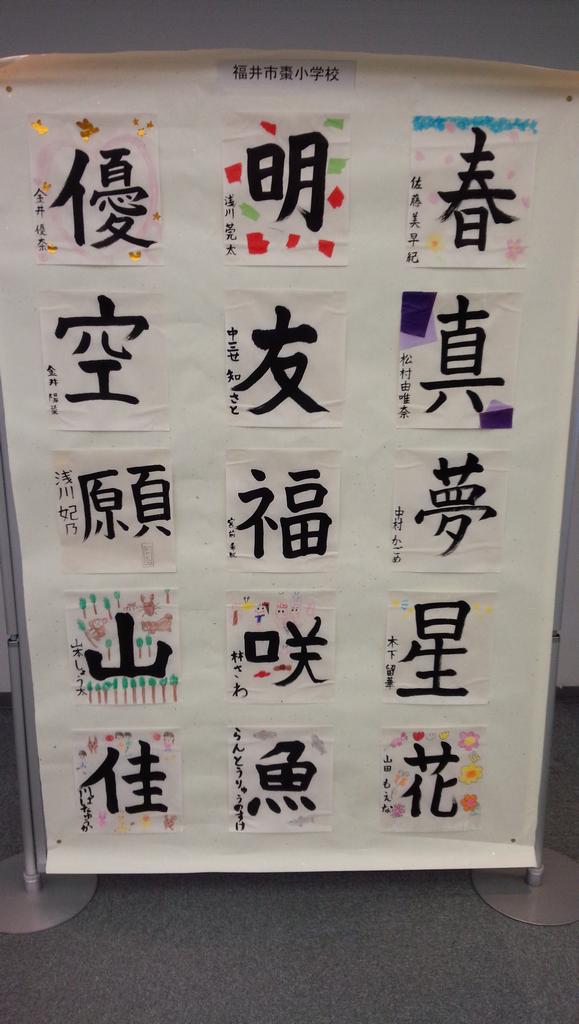 福井市棗小学校
春
佐藤美早紀
明
浅川莞太
優
金井優奈
真
松村由唯奈
友
中三世知さと
空
金井陽菜
夢
中村かごめ
福
願
浅川妃乃
星
木下留華
咲
林さわ
山
山本しゅう太
花
山田もえな
魚
らんとうりゅうのすけ
佳